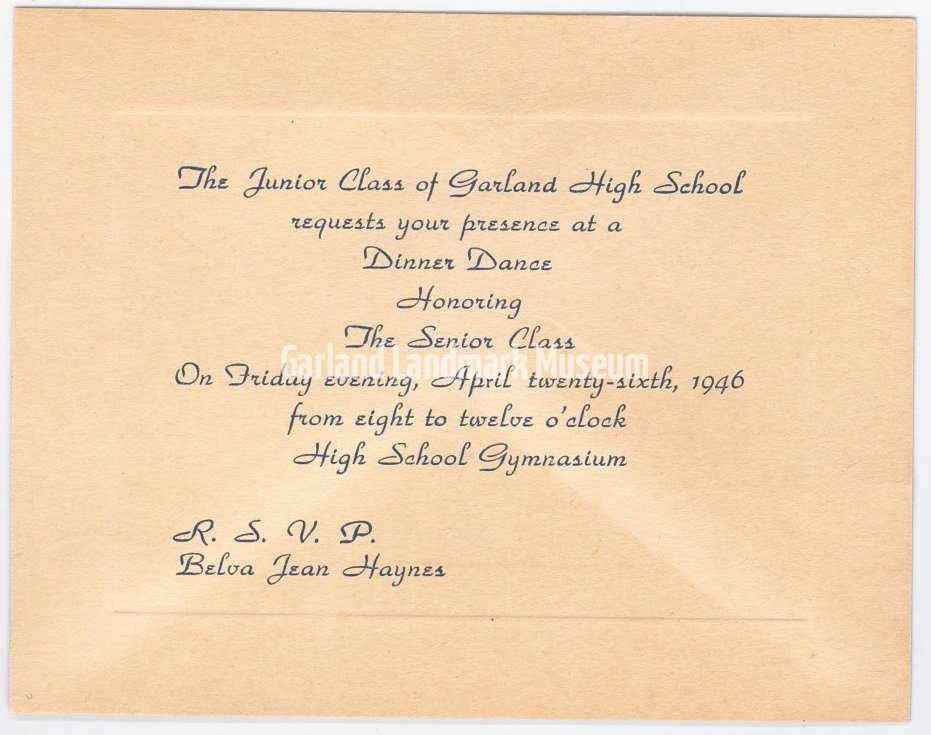 The Junior Class of Garland High School
requests your presence at a
Dinner Dance
Honoring
The Senior Class
Garland Landmark Museum
On Friday evening, April twenty-sixth, 1946
from eight to twelve o'clock
High School Gymnasium
R. S. V. P.
Belva Jean Haynes